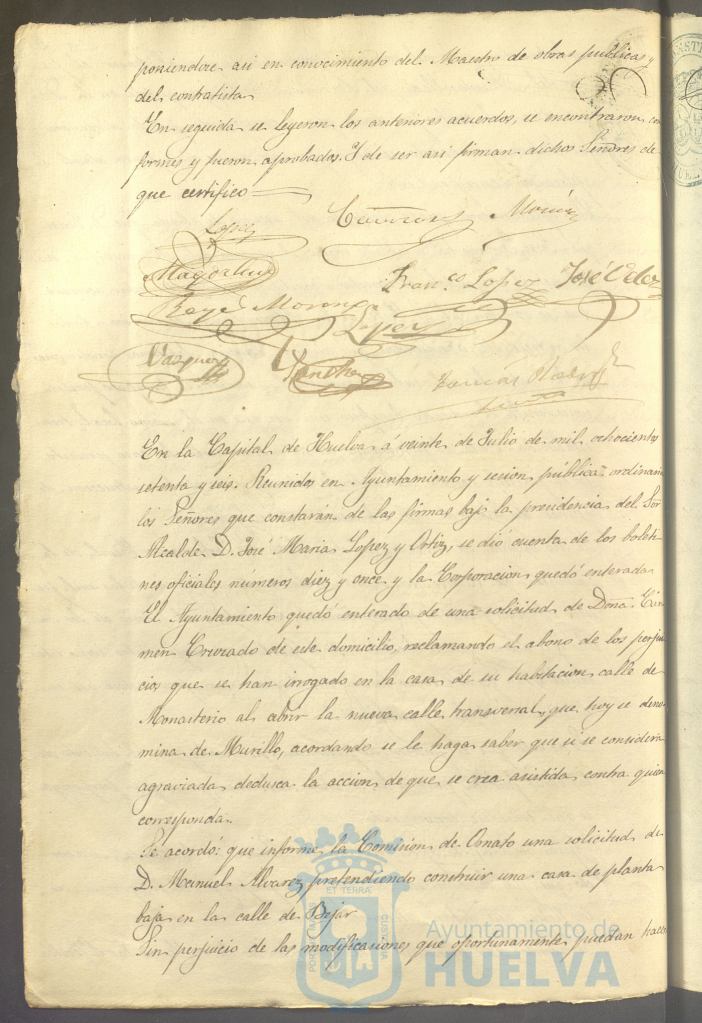 poniendose asi en conocimiento del Maestro de obras publicas y
del contratista
En seguida se leyeron los anteriores acuerdos, se encontraron con
formes y fueron aprobados. Y de ser asi firman dichos Señores de
que certifico
Lopez
Franco Lopez José Velez
Lopez
Vazquez Sanchez
En la Capital de Huelva á veinte de Julio de mil ochocientos
setenta y seis. Reunidos en Ayuntamiento y sesion pública ordinaria
los Señores que constarán de las firmas bajo la presidencia del Sor
Alcalde D. José Maria Lopez y Ortiz, se dió cuenta de los boleti
nes oficiales números diez y once y la Corporacion quedó enterada
El Ayuntamiento quedó enterado de una solicitud de Doña Cár
men de este domicilio, reclamando el abono de los perjui
cios que se han irrogado en la casa de su habitacion calle de
Monasterio al abrir la nueva calle transversal que hoy se deno
mina de Murillo, acordando se le haga saber que si se considera
agraviada deduzca la accion de que se crea asistida contra quien
corresponda.
Se acordó: que informe la Comision de Ornato una solicitud de
D. Manuel Alvarez pretendiendo construir una casa de planta
baja en la calle de Bejar
Sin perjuicio de las modificaciones que oportunamente puedan hacer
Ayuntamiento de
HUELVA